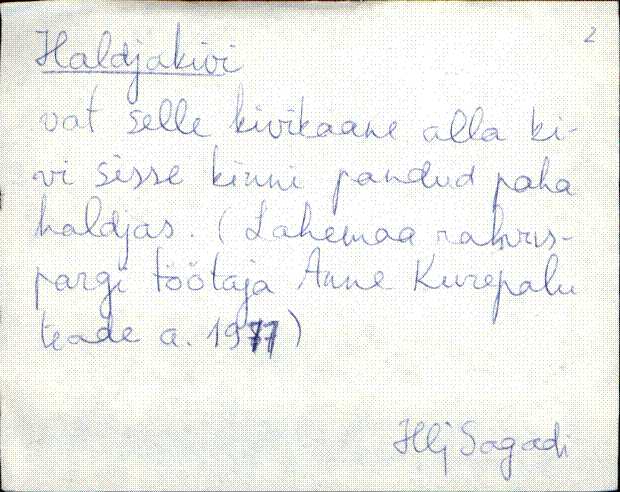 2
Haldjakivi
vat selle kivikaane alla ki-
vi sisse kinni pandud paha
haldjas. (Lahemaa rahvus-
pargi töötaja Anne Kurepalu
teade a. 1977)
Hlj Sagadi